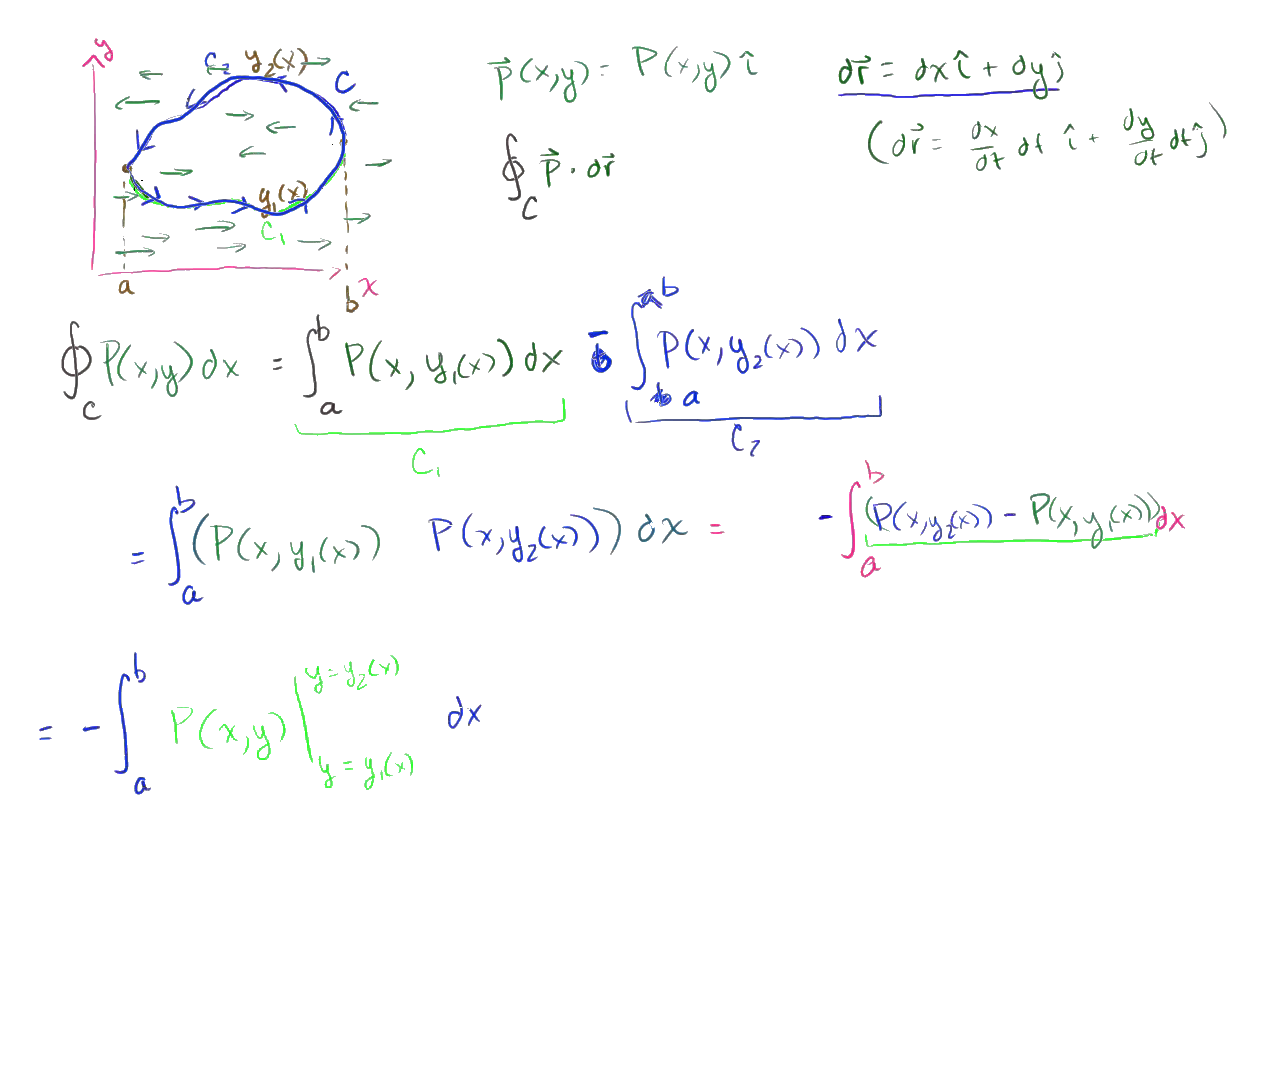 y
C₂ y₂(x)
C
y₁(x)
C₁
a
b x
P⃗(x,y) = P(x,y) î
dr⃗ = dx î + dy ĵ
(dr⃗ = dx/dt dt î + dy/dt dt ĵ)
∮_C P⃗ · dr⃗
∮_C P(x,y) dx = ∫_a^b P(x, y₁(x)) dx − ∫_a^b P(x, y₂(x)) dx
C₁
C₂
= ∫_a^b (P(x, y₁(x)) P(x, y₂(x))) dx = − ∫_a^b (P(x, y₂(x)) − P(x, y₁(x))) dx
= − ∫_a^b P(x,y) |_{y = y₁(x)}^{y = y₂(x)} dx